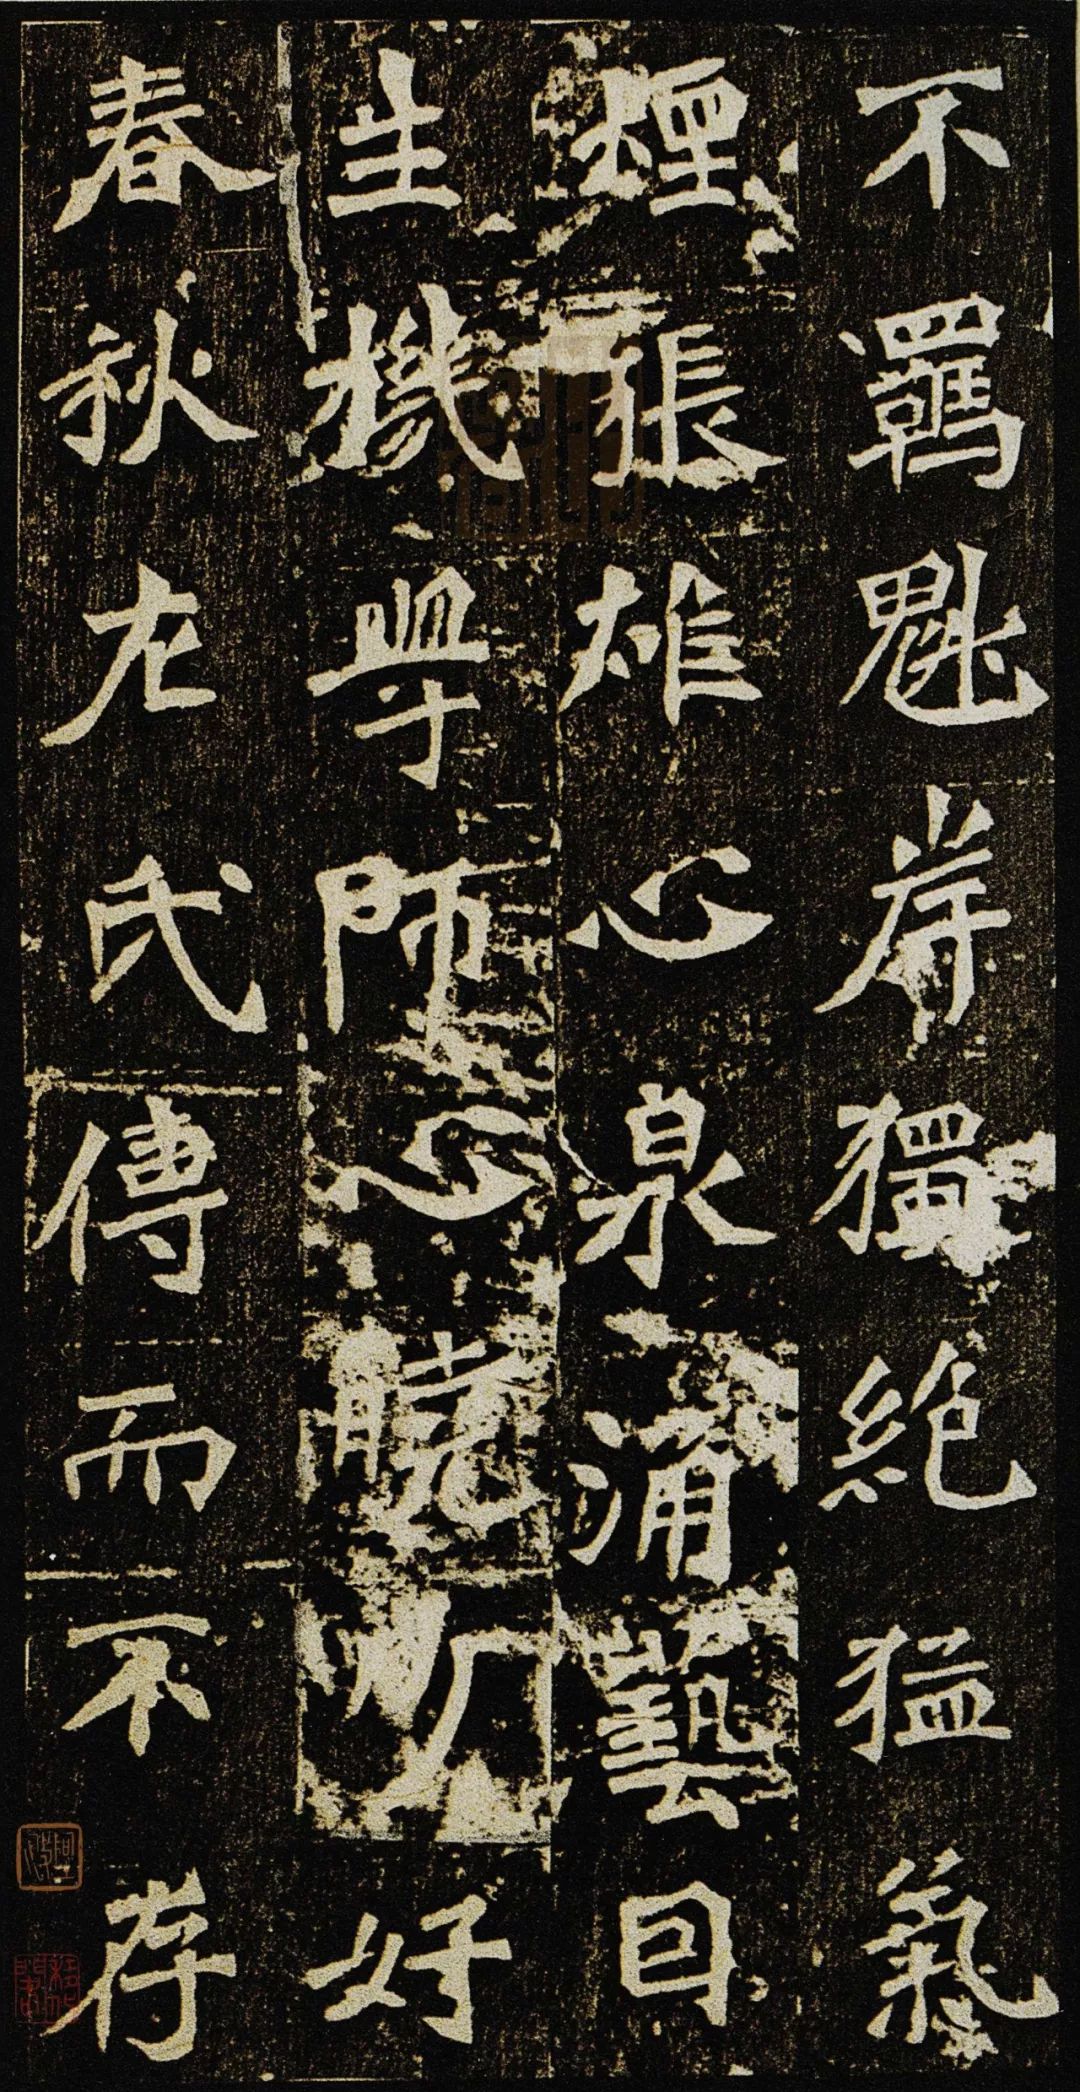 不羈魁岸獨絕猛氣
煙張雄心泉涌藝因
生機學師心曉少好
春秋左氏傳而不存